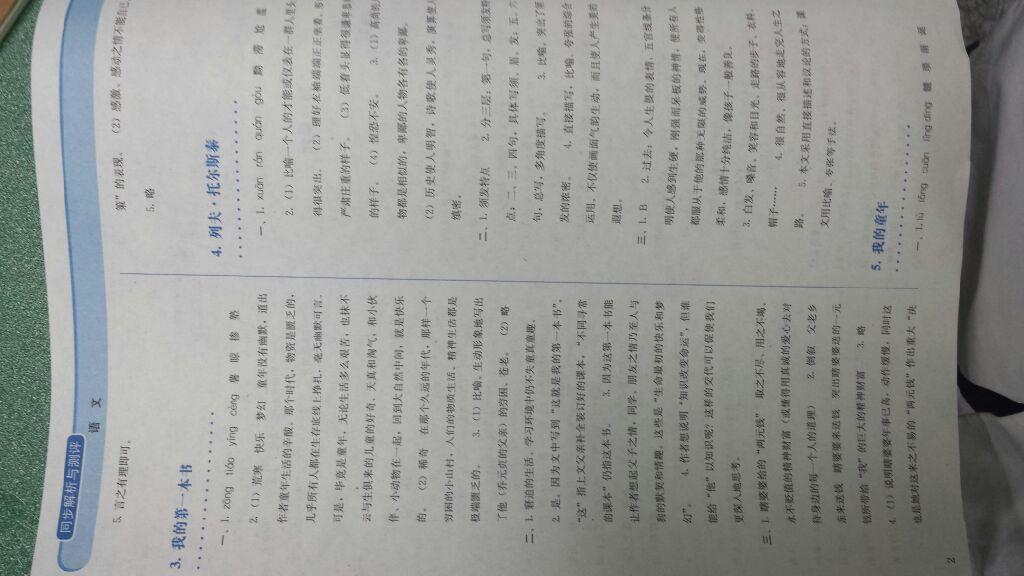 同步解析与测评
语 文
5. 言之有理即可。
3. 我的第一本书
一、1. zōng tiáo yíng céng 馨 晾 掺 塾
2. (1) 荒寒 快乐 梦幻 童年没有幽默，道出
作者童年生活的辛酸，那个时代，物资是匮乏的，
几乎所有人都在生存底线上挣扎，毫无幽默可言。
可是，毕竟是童年，无论生活多么艰苦，也抹不
去与生俱来的儿童的好奇、天真和淘气，和小伙
伴、小动物在一起，回到大自然中间，就是快乐
的。 (2) 稀奇 在那个久远的年代，那样一个
穷困的小山村，人们的物质生活、精神生活都是
极端匮乏的。 3. (1) 比喻。生动形象地写出
了他（乔元贞的父亲）的穷困、苍老。 (2) 略
二、1. 窘迫的生活、学习环境中仍不失童真童趣。
2. 是，因为文中写到“这就是我的第一本书”。
“这”指上文父亲补全装订好的课本，“不同寻常
的课本”仍指这本书。 3. 因为这第一本书能
让作者想起父子之情，同学、朋友之情乃至人与
狗的默契和情趣，这些是“生命最初的快乐和梦
幻”。 4. 作者想说明“知识改变命运”，但谁
能给“他”以知识呢？这样的交代可以促使我们
更深入地思考。
三、1. 瞎婆婆给的“两元钱” 取之不尽、用之不竭、
永不贬值的精神财富（或懂得用真诚的爱心去对
待身边的每一个人的道理） 2. 倒叙 父老乡
亲来送钱 瞎婆婆来送钱 突出瞎婆婆送的一元
钱所带给“我”的巨大的精神财富 3. 略
4. (1) 说明瞎婆婆年事已高，动作缓慢，同时这
也是她对这来之不易的“两元钱”作出重大“决
策”的表现。 (2) 感激、感动之情不能自已。
5. 略
4. 列夫·托尔斯泰
一、1. xuān rán quán gōu 黝 滞 尬
2. (1) 比喻一个人的才能或仪表在一群人里头
得很突出。 (2) 理好衣袖端端正正坐着，形
严肃庄重的样子。 (3) 低着头显得很谦卑恭
的样子。 (4) 惶恐不安。 3. (1) 高尚的
物都是相似的，卑鄙的人物各有各的卑鄙。
(2) 历史使人明智，诗歌使人灵秀，演算使人
缜密。
二、1. 须发特点 2. 分三层：第一句，总写须发特
点；二、三、四句，具体写须、眉、发；五、六
句，总写，多角度描写。 3. 比喻，突出了须
发的浓密。 4. 直接描写，比喻、夸张的综合
运用，不仅使画面气韵生动，而且使人产生美的
遐想。
三、1. B 2. 过去：令人生畏的表情，五官线条分
明使人感到生硬，刚强而呆板的神情，使所有人
都服从于他的那种无限的威势。现在：变得性格
柔和，感情十分纯洁，像孩子一般善良。
3. 白发、嗓音、笑容和目光、走路的步子、衣料、
帽子…… 4. 很自然、很从容地走完人生之
路。 5. 本文采用直接描述和议论的方式，课
文用比喻、夸张等手法。
5. 我的童年
2